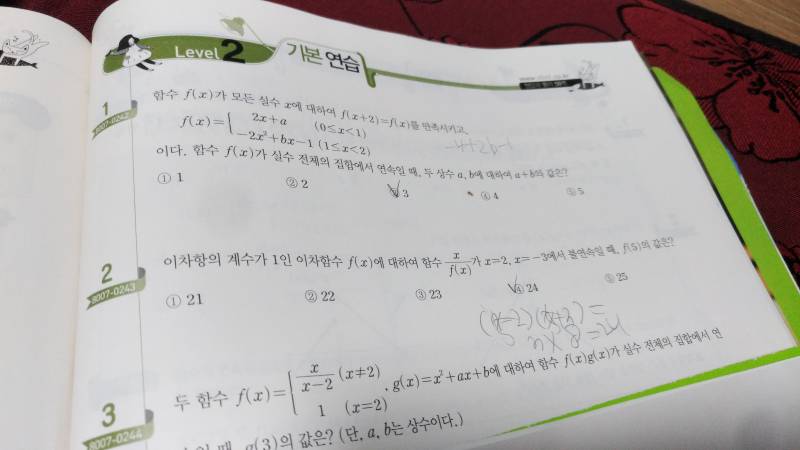 Level 2 기본 연습
1
8007-0242
함수 f(x)가 모든 실수 x에 대하여 f(x+2)=f(x)를 만족시키고,
f(x)={ 2x+a (0≤x<1)
-2x²+bx-1 (1≤x<2)
이다. 함수 f(x)가 실수 전체의 집합에서 연속일 때, 두 상수 a, b에 대하여 a+b의 값은?
① 1 ② 2 ③ 3 ④ 4 ⑤ 5
2
8007-0243
이차항의 계수가 1인 이차함수 f(x)에 대하여 함수 x/f(x)가 x=2, x=-3에서 불연속일 때, f(5)의 값은?
① 21 ② 22 ③ 23 ④ 24 ⑤ 25
3
8007-0244
두 함수 f(x)={ x/(x-2) (x≠2)
1 (x=2)
, g(x)=x²+ax+b에 대하여 함수 f(x)g(x)가 실수 전체의 집합에서 연
때, g(3)의 값은? (단, a, b는 상수이다.)